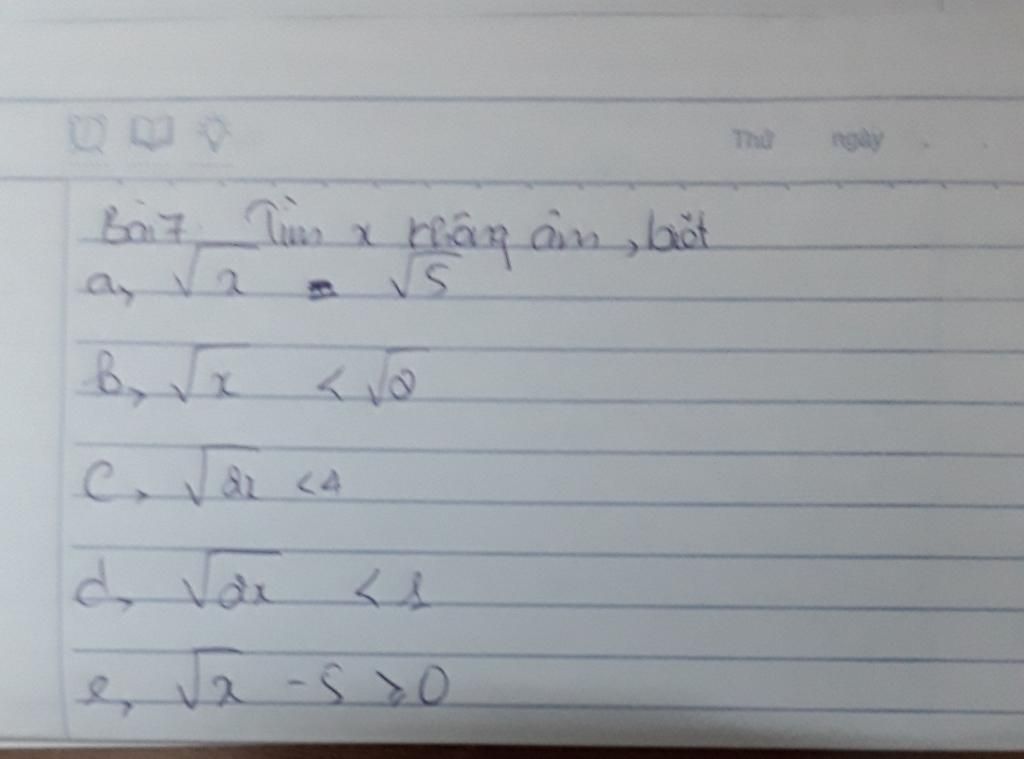 Thứ ngày
Bài 7. Tìm x không âm, biết
a, √x = √5
b, √x < √2
c, √2x < 4
d, √2x < 1
e, √x - 5 ≥ 0